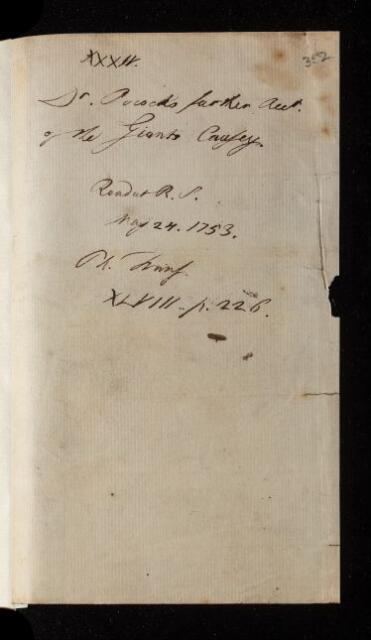 XXXIV.
352
Dr. Pocock's further Acct.
of the Giants Causey.
Read at R. S.
May 24. 1753.
Ph. Transf.
XLVIII. p. 226.